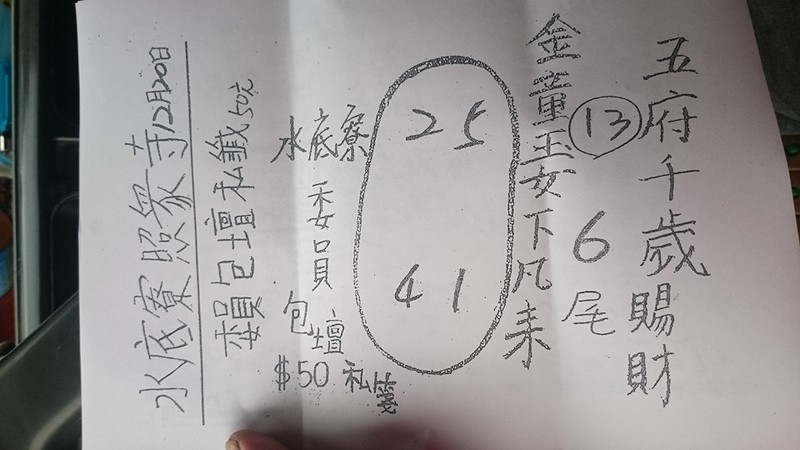 五府千歲賜財
13
6尾
金童玉女下凡来
25
41
水底寮
委員
包壇
$50 私籤
賴包壇私籤50元
水底寮照眾寺12月20日